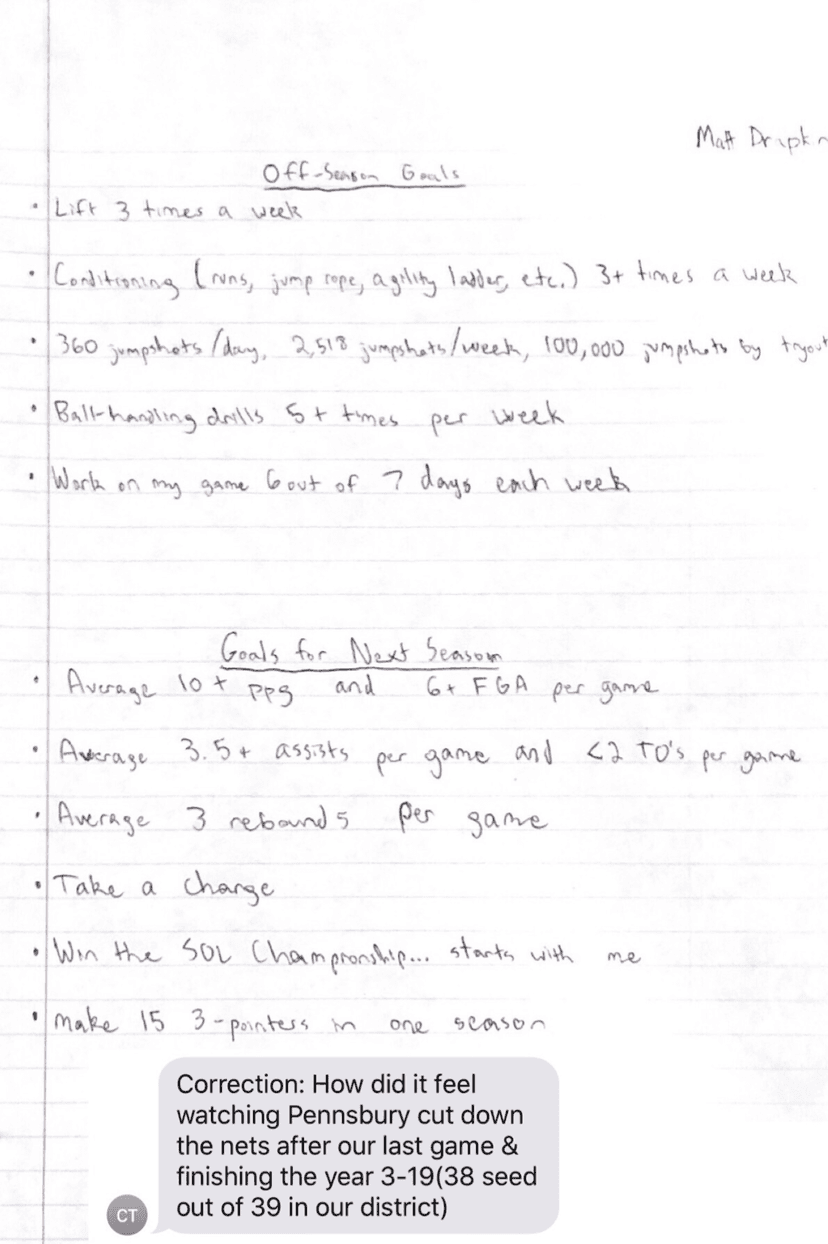 Matt Drapkin
Off-Season Goals
• Lift 3 times a week
• Conditioning (runs, jump rope, agility ladder, etc.) 3+ times a week
• 360 jumpshots/day, 2,518 jumpshots/week, 100,000 jumpshots by tryout
• Ball-handling drills 5+ times per week
• Work on my game 6 out of 7 days each week
Goals for Next Season
• Average 10+ ppg and 6+ FGA per game
• Average 3.5+ assists per game and <2 TO's per game
• Average 3 rebounds per game
• Take a charge
• Win the SOL Championship... starts with me
• Make 15 3-pointers in one season
Correction: How did it feel
watching Pennsbury cut down
the nets after our last game &
finishing the year 3-19(38 seed
out of 39 in our district)
CT